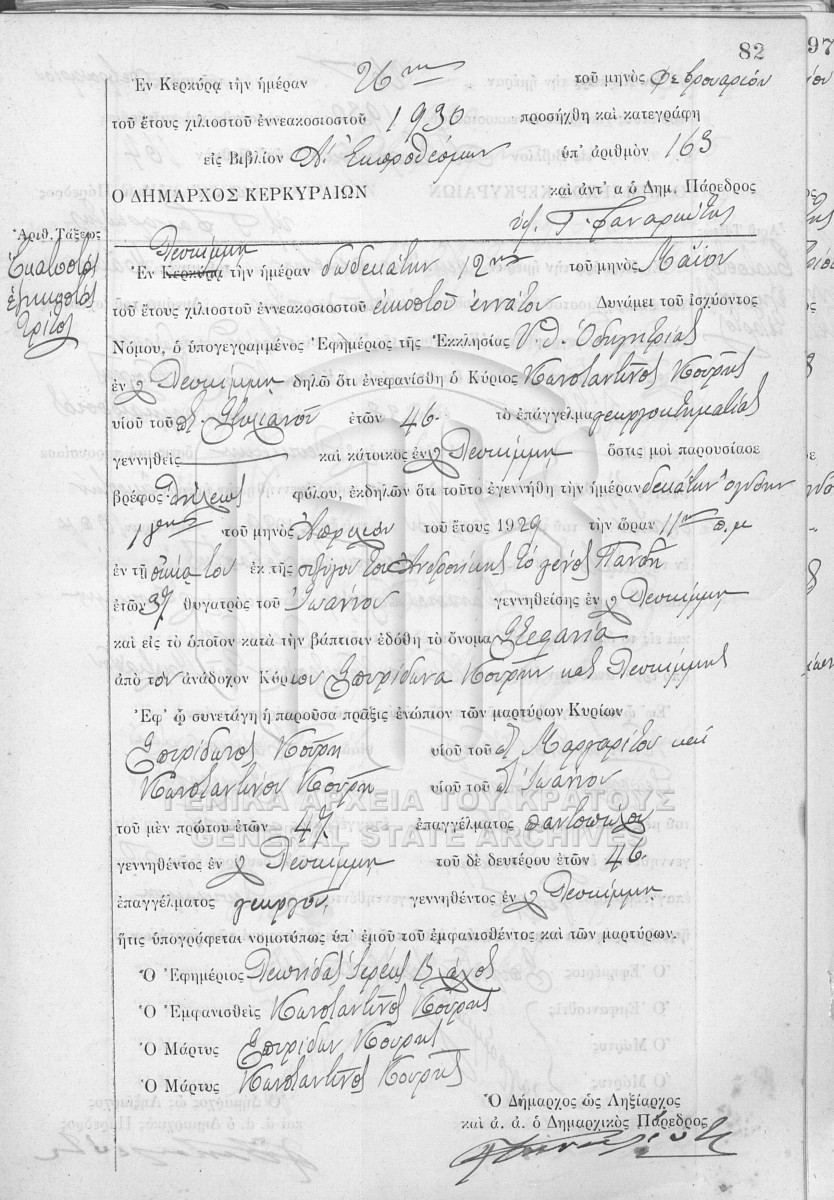 82
97
Ἐν Κερκύρᾳ τὴν ἡμέραν 26ην τοῦ μηνὸς Φεβρουαρίου
τοῦ ἔτους χιλιοστοῦ ἐννεακοσιοστοῦ 1930 προσήχθη καὶ κατεγράφη
εἰς Βιβλίον Α. Ἐκπροθέσμων ὑπ' ἀριθμὸν 163
Ο ΔΗΜΑΡΧΟΣ ΚΕΡΚΥΡΑΙΩΝ καὶ ἀντ' α ὁ Δημ. Πάρεδρος
Ἀριθ. Τάξεως
Ἑκατοστὸς
ἑξηκοστὸς
τρίτος
Λευκίμμῃ
Ἐν Κερκύρᾳ τὴν ἡμέραν δωδεκάτην 12ην τοῦ μηνὸς Μαΐου
τοῦ ἔτους χιλιοστοῦ ἐννεακοσιοστοῦ εἰκοστοῦ ἐννάτου Δυνάμει τοῦ ἰσχύοντος
Νόμου, ὁ ὑπογεγραμμένος Ἐφημέριος τῆς Ἐκκλησίας Υ. Θ. Ὁδηγητρίας
ἐν Λευκίμμῃ δηλῶ ὅτι ἐνεφανίσθη ὁ Κύριος Κωνσταντῖνος Κουρῆς
υἱοῦ τοῦ Στυλιανοῦ ἐτῶν 46 τὸ ἐπάγγελμα γεωργοκτηματίας
γεννηθεὶς καὶ κάτοικος ἐν Λευκίμμῃ ὅστις μοὶ παρουσίασε
βρέφος θήλεως φύλου, ἐκδηλῶν ὅτι τοῦτο ἐγεννήθη τὴν ἡμέραν δεκάτην ὀγδόην
18ην τοῦ μηνὸς Ἀπριλίου τοῦ ἔτους 1929 τὴν ὥραν 11ην π.μ
ἐν τῇ οἰκίᾳ του ἐκ τῆς συζύγου του Ἀνδρονίκης τὸ γένος Πανδῆ
ἐτῶν 37 θυγατρὸς τοῦ Ἰωάννου γεννηθείσης ἐν Λευκίμμῃ
καὶ εἰς τὸ ὁποῖον κατὰ τὴν βάπτισιν ἐδόθη τὸ ὄνομα Στεφανία
ἀπὸ τὸν ἀνάδοχον Κύριον Σπυρίδωνα Κουρῆν κατ. Λευκίμμης
Ἐφ' ᾧ συνετάγη ἡ παροῦσα πρᾶξις ἐνώπιον τῶν μαρτύρων Κυρίων
Σπυρίδωνος Κουρῆ υἱοῦ τοῦ Μαργαρίτου καὶ
Κωνσταντίνου Κουρῆ υἱοῦ τοῦ Ἰωάννου
ΓΕΝΙΚΑ ΑΡΧΕΙΑ ΤΟΥ ΚΡΑΤΟΥΣ
τοῦ μὲν πρώτου ἐτῶν 47 ἐπαγγέλματος παντοπώλου
GENERAL STATE ARCHIVES
γεννηθέντος ἐν Λευκίμμῃ τοῦ δὲ δευτέρου ἐτῶν 46
ἐπαγγέλματος γεωργοῦ γεννηθέντος ἐν Λευκίμμῃ
ἥτις ὑπογράφεται νομοτύπως ὑπ' ἐμοῦ τοῦ ἐμφανισθέντος καὶ τῶν μαρτύρων.
Ὁ Ἐφημέριος Λεωνίδας Ἱερεὺς Βλάχος
Ὁ Ἐμφανισθεὶς Κωνσταντῖνος Κουρῆς
Ὁ Μάρτυς Σπυρίδων Κουρῆς
Ὁ Μάρτυς Κωνσταντῖνος Κουρῆς
Ὁ Δήμαρχος ὡς Ληξίαρχος
καὶ ἀ. ἀ. ὁ Δημαρχικὸς Πάρεδρος